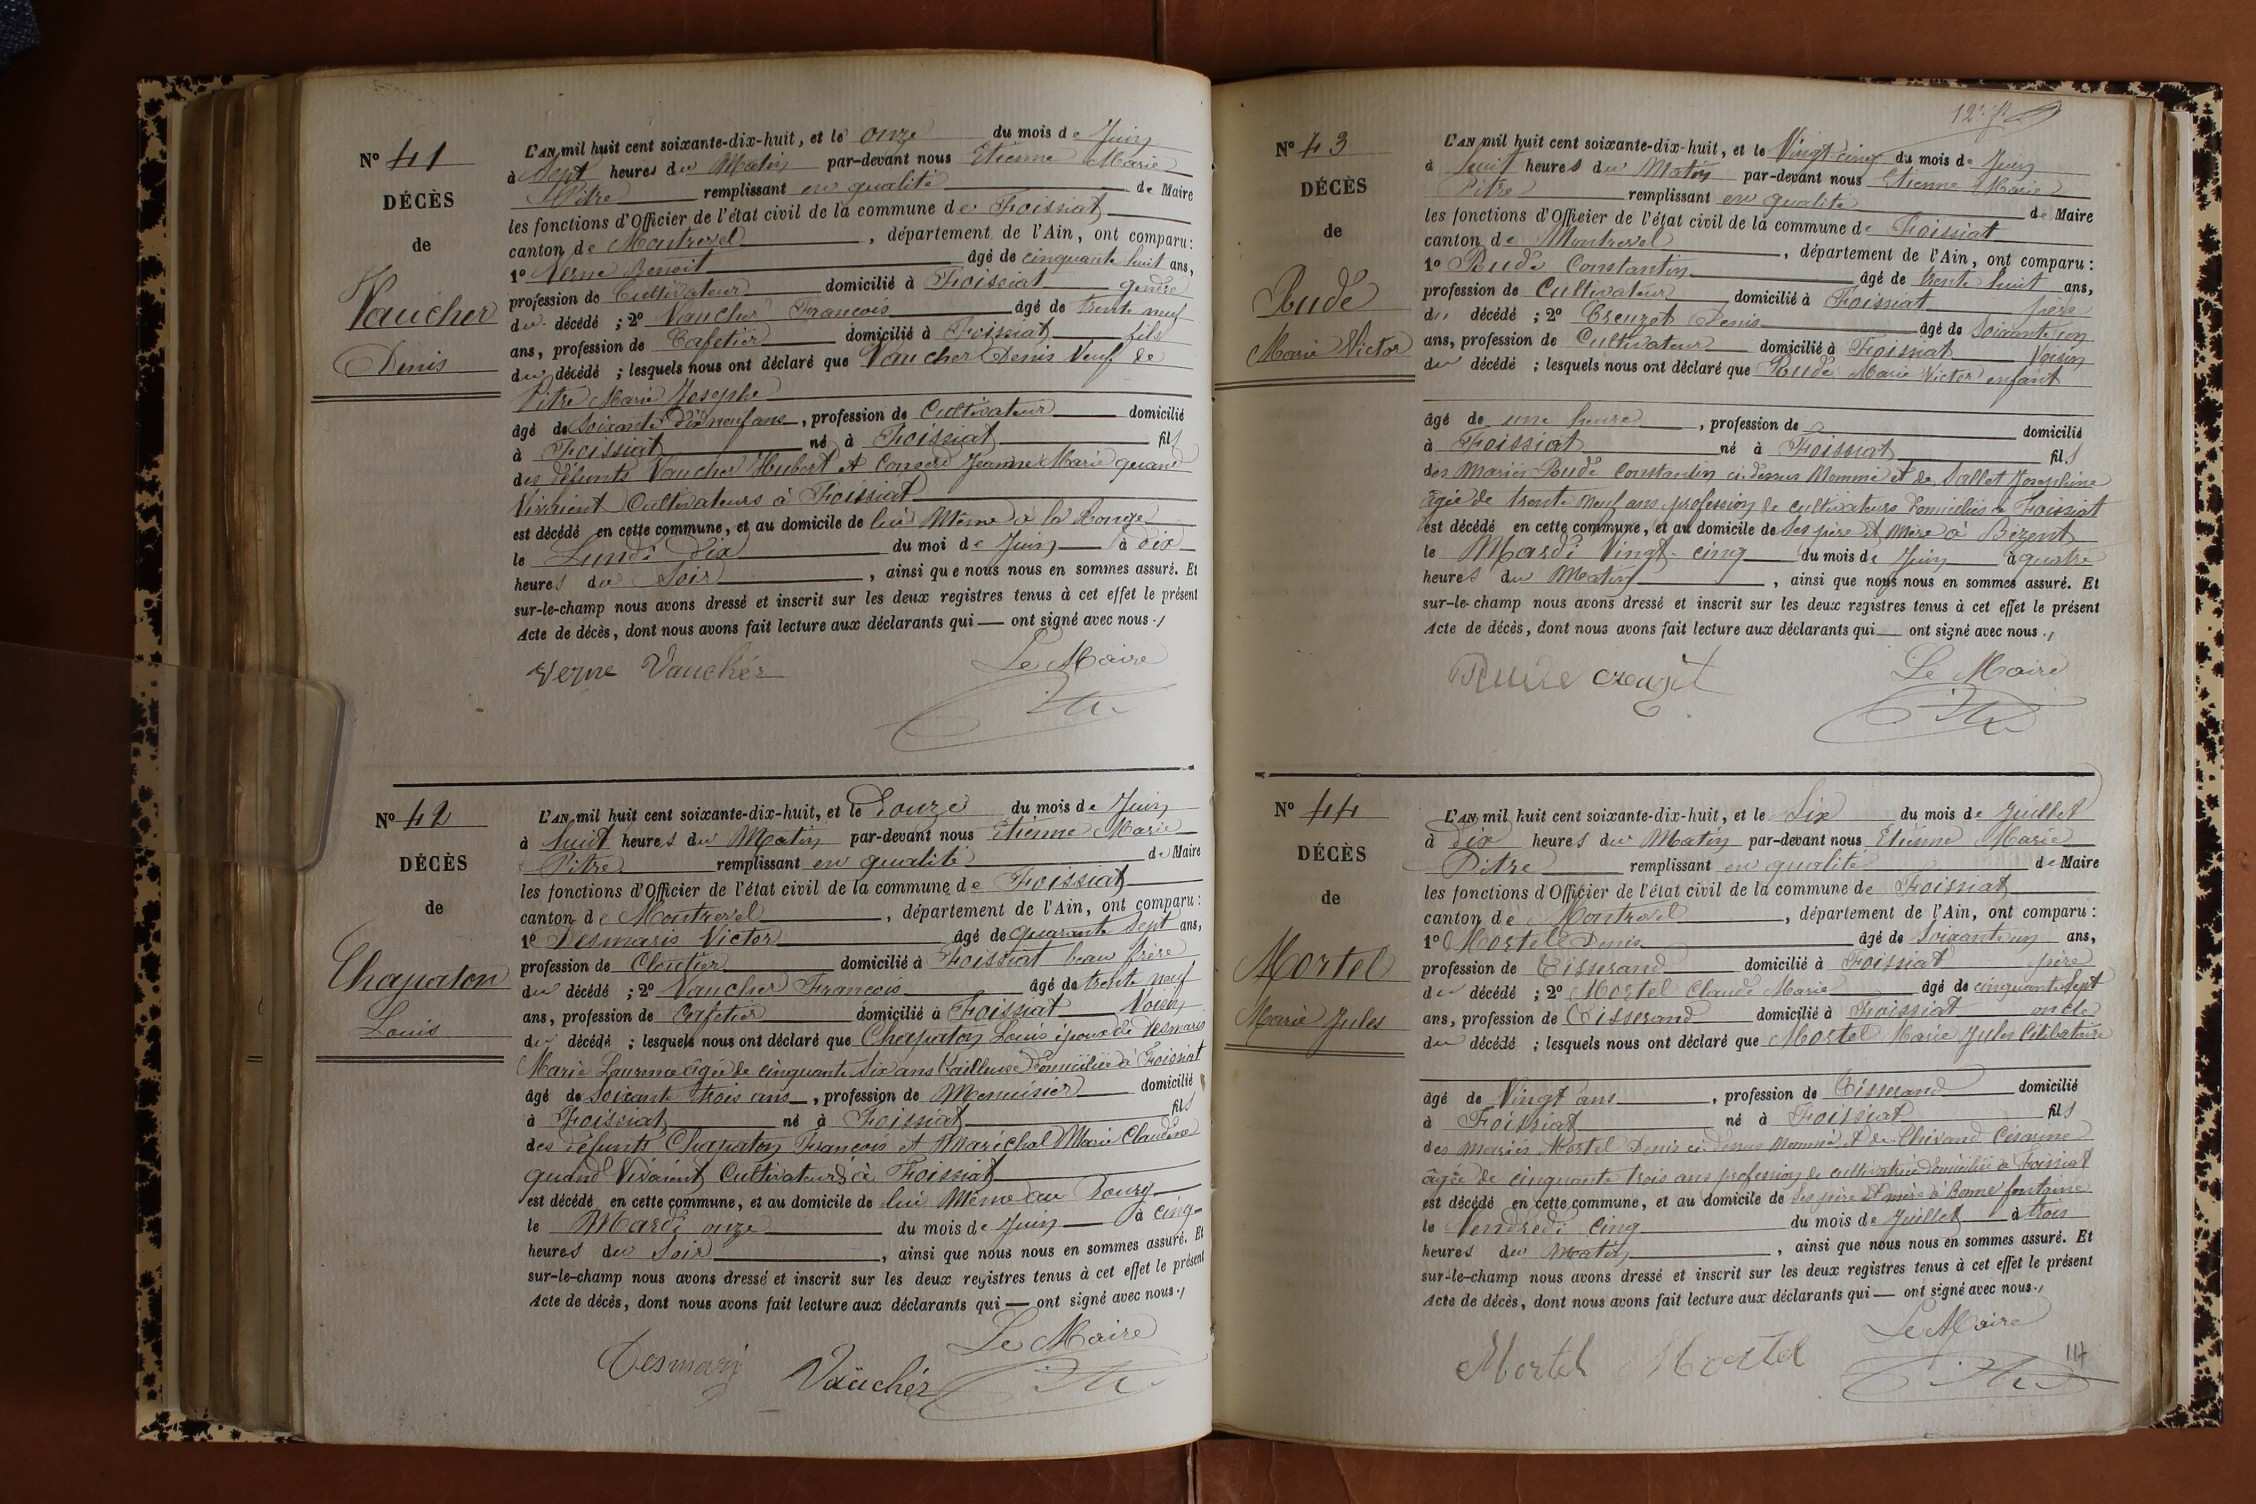 N° 41
DÉCÈS
de
Vaucher
Denis
L'AN mil huit cent soixante-dix-huit, et le onze du mois de Juin
à Sept heures du Matin par-devant nous Etienne Marie
Pitre remplissant en qualité de Maire
les fonctions d'Officier de l'état civil de la commune de Foissiat
canton de Montrevel, département de l'Ain, ont comparu:
1° Verne Benoit âgé de cinquante huit ans,
profession de Cultivateur domicilié à Foissiat gendre
du décédé ; 2° Vaucher François âgé de trente neuf
ans, profession de Cafetier domicilié à Foissiat fils
du décédé ; lesquels nous ont déclaré que Vaucher Denis Veuf de
Pitre Marie Josephe
âgé de soixante dix neuf ans, profession de Cultivateur domicilié
à Foissiat né à Foissiat fils
des défunts Vaucher Hubert et Jeanne Marie quand
Vivaient Cultivateurs à Foissiat
est décédé en cette commune, et au domicile de lui Même à la
le Lundi dix du moi de Juin à dix
heures du Soir, ainsi que nous nous en sommes assuré. Et
sur-le-champ nous avons dressé et inscrit sur les deux registres tenus à cet effet le présent
Acte de décès, dont nous avons fait lecture aux déclarants qui — ont signé avec nous.
Le Maire
Verne Vauchér
Pitre
N° 42
DÉCÈS
de
Chapaton
Louis
L'AN mil huit cent soixante-dix-huit, et le Douze du mois de Juin
à huit heures du Matin par-devant nous Etienne Marie
Pitre remplissant en qualité de Maire
les fonctions d'Officier de l'état civil de la commune de Foissiat
canton de Montrevel, département de l'Ain, ont comparu:
1° Desmaris Victor âgé de quarante sept ans,
profession de Cloutier domicilié à Foissiat beau frère
du décédé ; 2° Vaucher François âgé de trente neuf
ans, profession de Cafetier domicilié à Foissiat Voisin
du décédé ; lesquels nous ont déclaré que Chapaton Louis époux de Desmaris
Marie Laurence âgée de cinquante six ans tailleuse domiciliée à Foissiat
âgé de soixante trois ans, profession de Menuisier domicilié
à Foissiat né à Foissiat fils
des défunts Chapaton François et Maréchal Marie Claudine
quand Vivaient Cultivateurs à Foissiat
est décédé en cette commune, et au domicile de lui Même au Bourg
le Mardi onze du mois de Juin à cinq
heures du Soir, ainsi que nous nous en sommes assuré. Et
sur-le-champ nous avons dressé et inscrit sur les deux registres tenus à cet effet le présent
Acte de décès, dont nous avons fait lecture aux déclarants qui — ont signé avec nous.
Le Maire
Desmaris Vauchér Pitre
N° 43
DÉCÈS
de
Rude
Marie Victor
L'AN mil huit cent soixante-dix-huit, et le Vingt cinq du mois de Juin
à huit heures du Matin par-devant nous Etienne Marie
Pitre remplissant en qualité de Maire
les fonctions d'Officier de l'état civil de la commune de Foissiat
canton de Montrevel, département de l'Ain, ont comparu:
1° Rude Constantin âgé de trente huit ans,
profession de Cultivateur domicilié à Foissiat père
du décédé ; 2° Creuzet Denis âgé de soixante un
ans, profession de Cultivateur domicilié à Foissiat Voisin
du décédé ; lesquels nous ont déclaré que Rude Marie Victor enfant
âgé de une heure, profession de domicilié
à Foissiat né à Foissiat fils
des mariés Rude Constantin ci dessus Nommé et de Sallet Josephine
âgée de trente neuf ans profession de cultivateurs domiciliés à Foissiat
est décédé en cette commune, et au domicile de ses père et Mère à Bézent
le Mardi Vingt-cinq du mois de Juin à quatre
heures du Matin, ainsi que nous nous en sommes assuré. Et
sur-le-champ nous avons dressé et inscrit sur les deux registres tenus à cet effet le présent
Acte de décès, dont nous avons fait lecture aux déclarants qui — ont signé avec nous.
Le Maire
Rude creuzet
Pitre
N° 44
DÉCÈS
de
Mortel
Marie Jules
L'AN mil huit cent soixante-dix-huit, et le Six du mois de Juillet
à dix heures du Matin par-devant nous Etienne Marie
Pitre remplissant en qualité de Maire
les fonctions d'Officier de l'état civil de la commune de Foissiat
canton de Montrevel, département de l'Ain, ont comparu:
1° Mortel Denis âgé de soixante un ans,
profession de Tisserand domicilié à Foissiat père
du décédé ; 2° Mortel Claude Marie âgé de cinquante sept
ans, profession de Tisserand domicilié à Foissiat oncle
du décédé ; lesquels nous ont déclaré que Mortel Marie Jules Célibataire
âgé de Vingt ans, profession de Tisserand domicilié
à Foissiat né à Foissiat fils
des mariés Mortel Denis ci dessus nommé et de Césarine
âgée de cinquante trois ans profession de cultivatrice domiciliée à Foissiat
est décédé en cette commune, et au domicile de ses père et mère à Bonne fontaine
le Vendredi cinq du mois de Juillet à trois
heures du Matin, ainsi que nous nous en sommes assuré. Et
sur-le-champ nous avons dressé et inscrit sur les deux registres tenus à cet effet le présent
Acte de décès, dont nous avons fait lecture aux déclarants qui — ont signé avec nous.
Le Maire
Mortel Mortel Pitre
117